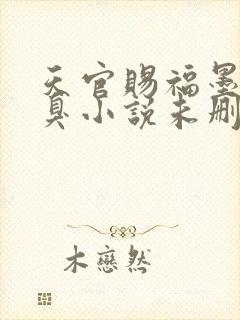 天官赐福墨
臭小说未删
木恋然